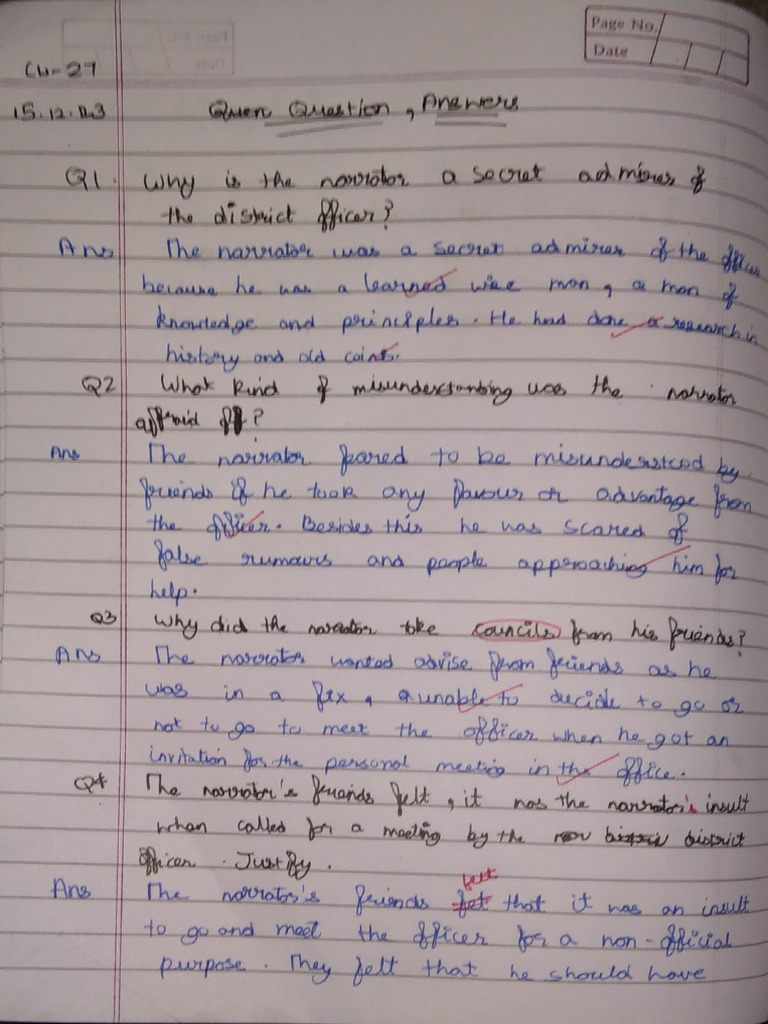 Page No.
Date
CH-27
15.12.23 Question, Answers
Q1. Why is the narrator a secret admirer of
the district officer?
Ans The narrator was a secret admirer of the officer
because he was a learned wise man, a man of
knowledge and principles. He had done a research in
history and old coins.
Q2 What kind of misunderstanding was the narrator
affraid of?
Ans The narrator feared to be misunderstood by
friends if he took any favour or advantage from
the officer. Besides this he was scared of
false rumours and people approaching him for
help.
Q3 Why did the narrator take councils from his friends?
Ans The narrator wanted advise from friends as he
was in a fix, unable to decide to go or
not to go to meet the officer when he got an
invitation for the personal meeting in the office.
Q4 The narrator's friends felt, it was the narrator's insult
when called for a meeting by the district
officer. Justify.
felt
Ans The narrator's friends that it was an insult
to go and meet the officer for a non-official
purpose. They felt that he should have